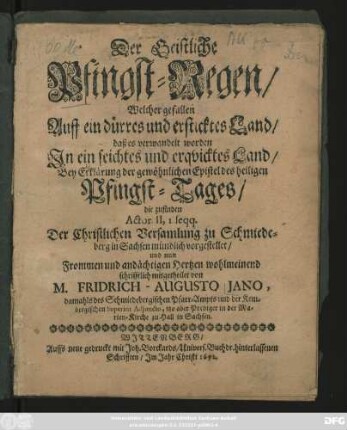 Der Geistliche
Pfingst-Regen/
Welcher gefallen
Auff ein dürres und ersticktes Land/
daß es verwandelt worden
In ein feichtes und erqvicktes Land/
Bey Erklärung der gewöhnlichen Epistel des heiligen
Pfingst-Tages/
die zufinden
Actor. II, 1 seqq.
Der Christlichen Versamlung zu Schmiede-
berg in Sachsen mündlich vorgestellet/
und nun
Frommen und andächtigen Hertzen wohlmeinend
schrifftlich mitgetheilet von
M. FRIDRICH-AUGUSTO JANO,
damahls des Schmiedebergischen Pfarr-Ampts und der Kem-
bergischen Adjuncto, itzo aber Prediger in der Ma-
rien-Kirche zu Hall in Sachsen.
WITTENBERG/
Auffs neue gedruckt mit Joh. Borckards/ Univers. Buchdr. hinterlassenen
Schrifften/ Im Jahr Christi